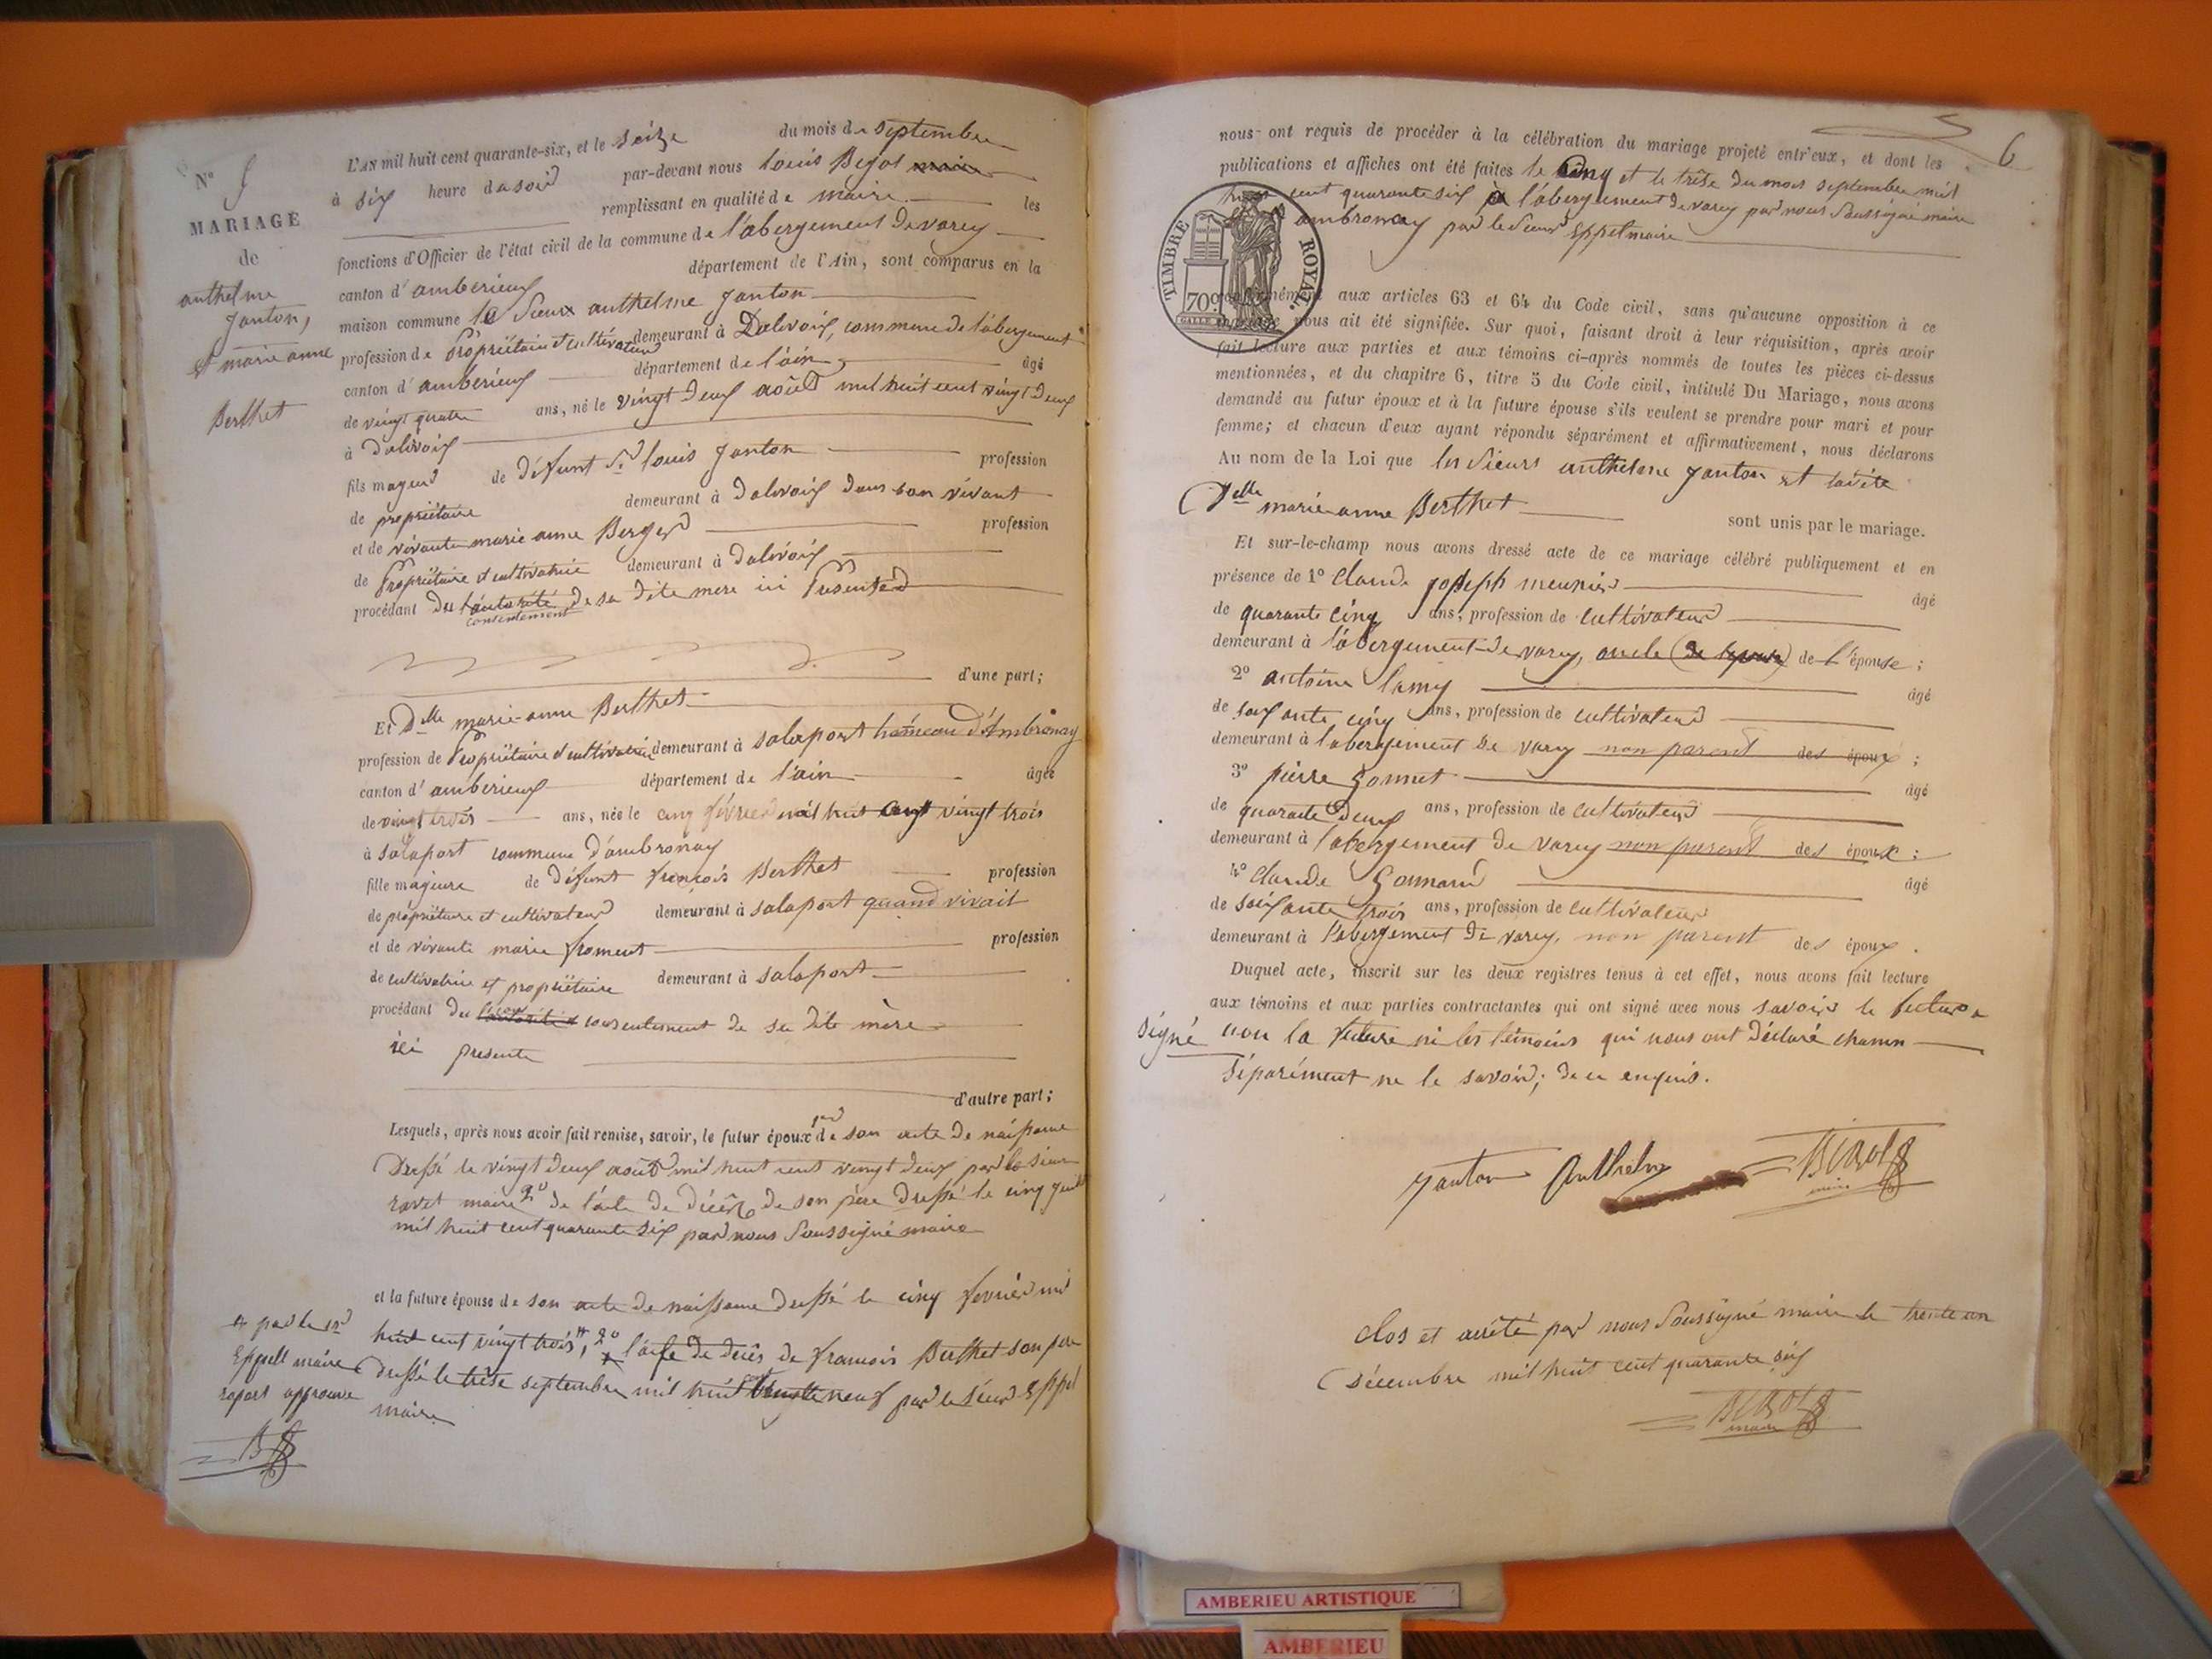 N°
MARIAGE
de
anthelme
Janton,
et marie anne
Berthet
L'AN mil huit cent quarante-six, et le seize du mois de septembre
à six heure du soir par-devant nous louis Begot maire
remplissant en qualité de maire les
fonctions d'Officier de l'état civil de la commune de l'abergement de varey
canton d'ambérieux département de l'Ain, sont comparus en la
maison commune le Sieur anthelme Janton
profession de Propriétaire et cultivateur demeurant à Dalivoix, commune de l'abergement
canton d'ambérieux département de l'ain âgé
de vingt quatre ans, né le vingt deux août mil huit cent vingt deux
à Dalivoix
fils majeur de défunt Sr louis Janton profession
de propriétaire demeurant à Dalivoix dans son vivant
et de vivante marie anne Berger profession
de Propriétaire et cultivatrice demeurant à Dalivoix
procédant de l'autorité de sa dite mere ici Presente
consentement
d'une part;
Et Delle marie-anne Berthet
profession de Propriétaire et cultivatrice demeurant à salaport hameau d'Ambronay
canton d'ambérieux département de l'ain âgée
de vingt trois ans, née le cinq février mil huit cent vingt trois
à salaport commune d'ambronay
fille majeure de défunt françois Berthet profession
de propriétaire et cultivateur demeurant à salaport quand vivait
et de vivante marie froment profession
de cultivatrice et propriétaire demeurant à salaport
procédant du consentement de sa dite mère
ici presente
d'autre part;
Lesquels, après nous avoir fait remise, savoir, le futur époux 1er de son acte de naissance
Dressé le vingt deux août mil huit cent vingt deux par le sieur
ravet maire 2° de l'acte de décès de son père dressé le cinq
mil huit cent quarante six par nous Soussigné maire
et la future épouse de son acte de naissance dressé le cinq fevrier mil
huit cent vingt trois, 2° l'acte de decès de francois Berthet son pere
dressé le trêse septembre mil huit trente neuf par le sieur Eppel
maire
par le sr
Eppell maire
raport approuvé
6
nous ont requis de procéder à la célébration du mariage projeté entr'eux, et dont les
publications et affiches ont été faites le cinq et le trêse du mois septembre mil
huit cent quarante six à l'abergement de varey par nous Soussigné maire
ambronay par le Sieur Eppel maire
TIMBRE ROYAL.
70c
conformément aux articles 63 et 64 du Code civil, sans qu'aucune opposition à ce
mariage nous ait été signifiée. Sur quoi, faisant droit à leur réquisition, après avoir
fait lecture aux parties et aux témoins ci-après nommés de toutes les pièces ci-dessus
mentionnées, et du chapitre 6, titre 5 du Code civil, intitulé Du Mariage, nous avons
demandé au futur époux et à la future épouse s'ils veulent se prendre pour mari et pour
femme; et chacun d'eux ayant répondu séparément et affirmativement, nous déclarons
Au nom de la Loi que les Sieurs anthelme Janton et
Delle marie-anne Berthet sont unis par le mariage.
Et sur-le-champ nous avons dressé acte de ce mariage célébré publiquement et en
présence de 1° Claude joseph meunier âgé
de quarante cinq ans, profession de cultivateur
demeurant à l'abergement de varey, oncle (de ) de l'épouse;
2° antoine lamy âgé
de soixante cinq ans, profession de cultivateur
demeurant à l'abergement de varey non parent des époux;
3° pierre Gonnet âgé
de quarante deux ans, profession de cultivateur
demeurant à l'abergement de varey non parent des époux;
4° claude Gonnard âgé
de soixante trois ans, profession de cultivateur
demeurant à l'abergement de varey, non parent des époux.
Duquel acte, inscrit sur les deux registres tenus à cet effet, nous avons fait lecture
aux témoins et aux parties contractantes qui ont signé avec nous savoir le futur a
signé non la future ni les témoins qui nous ont déclaré chacun
séparément ne le savoir; de ce enquis.
Janton Anthelme Begot
maire
Clos et arrêté par nous Soussigné maire le trente un
Décembre mil huit cent quarante six
Begot
maire
AMBERIEU ARTISTIQUE
AMBERIEU